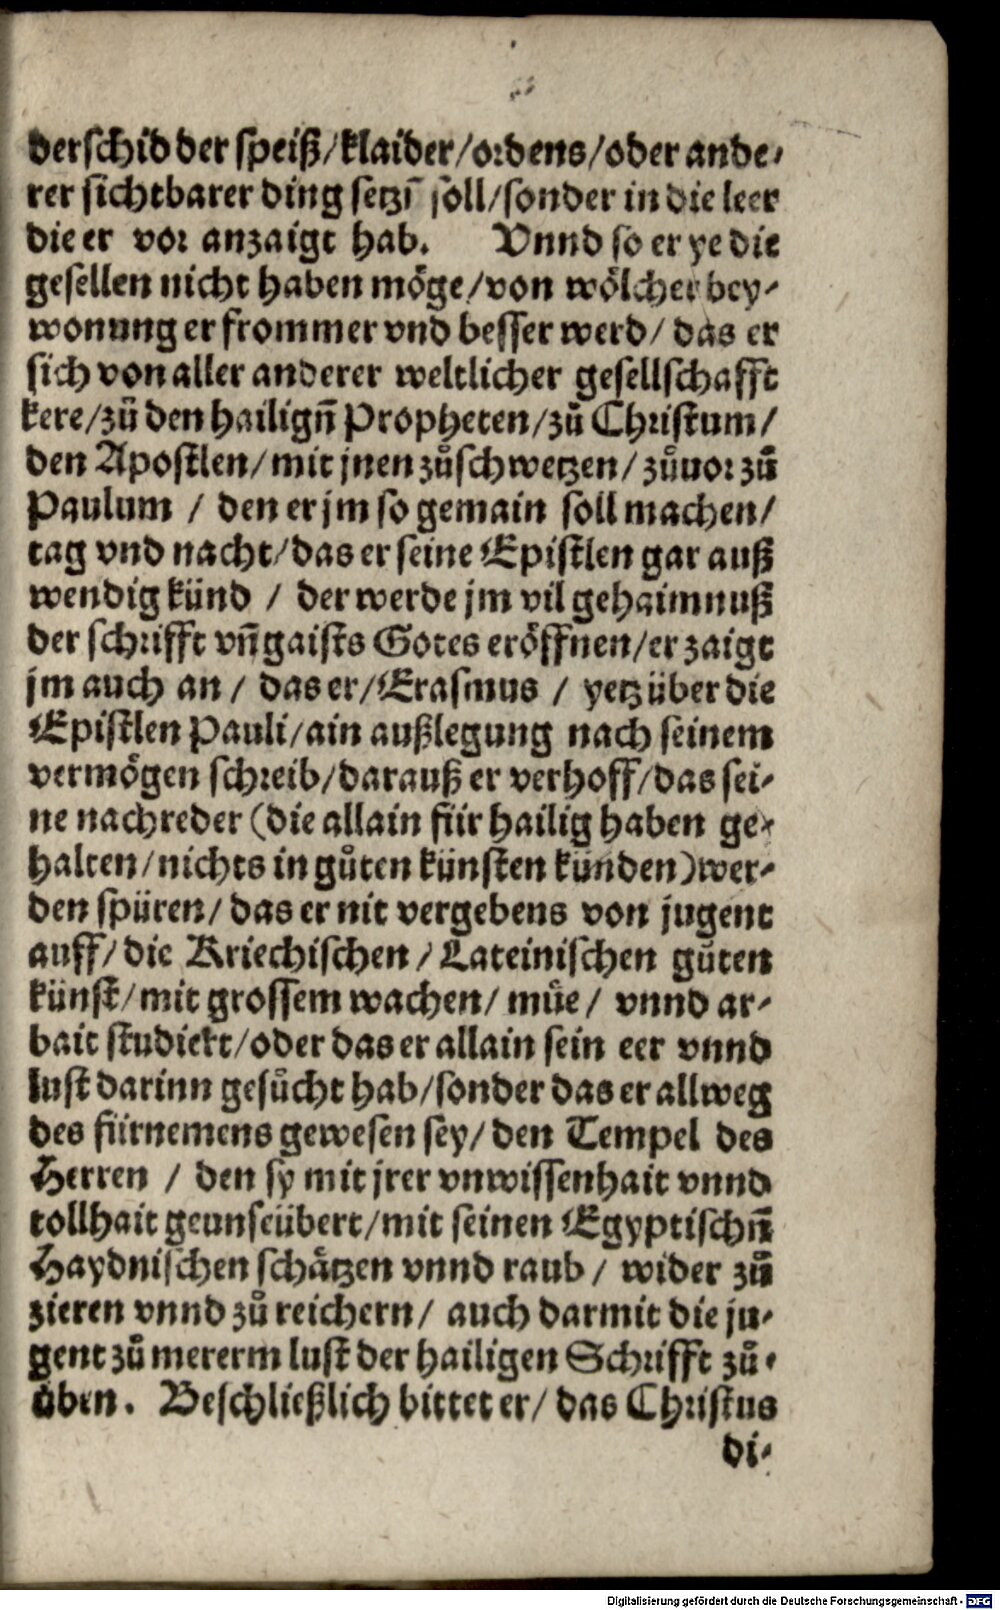 derschid der speiß/klaider/ordens/oder ande-
rer sichtbarer ding setzē soll/sonder in die leer
die er vor anzaigt hab. Vnnd so er ye die
gesellen nicht haben möge/von wölcher bey-
wonung er frommer vnd besser werd/das er
sich von aller anderer weltlicher gesellschafft
kere/zů den hailigñ Propheten/zů Christum/
den Apostlen/mit jnen zůschwetzen/zůuor zů
Paulum / den er jm so gemain soll machen/
tag vnd nacht/das er seine Epistlen gar auß
wendig künd / der werde jm vil gehaimnuß
der schrifft vñ gaists Gotes eröffnen/er zaigt
jm auch an / das er/Erasmus / yetz über die
Epistlen Pauli/ain außlegung nach seinem
vermögen schreib/darauß er verhoff/das sei-
ne nachreder (die allain für hailig haben ge-
halten/nichts in gůten künsten künden) wer-
den spüren/das er nit vergebens von jugent
auff/die Kriechischen/Lateinischen gůten
künst/mit grossem wachen/můe/ vnnd ar-
bait studiert/oder das er allain sein eer vnnd
lust darinn gesůcht hab/sonder das er allweg
des fürnemens gewesen sey/den Tempel des
Herren / den sy mit jrer vnwissenhait vnnd
tollhait geunseübert/mit seinen Egyptischñ
Haydnischen schätzen vnnd raub/ wider zů
zieren vnnd zů reichern/ auch darmit die ju-
gent zů mererm lust der hailigen Schrifft zů-
üben. Beschließlich bittet er/das Christus
di-
Digitalisierung gefördert durch die Deutsche Forschungsgemeinschaft - DFG